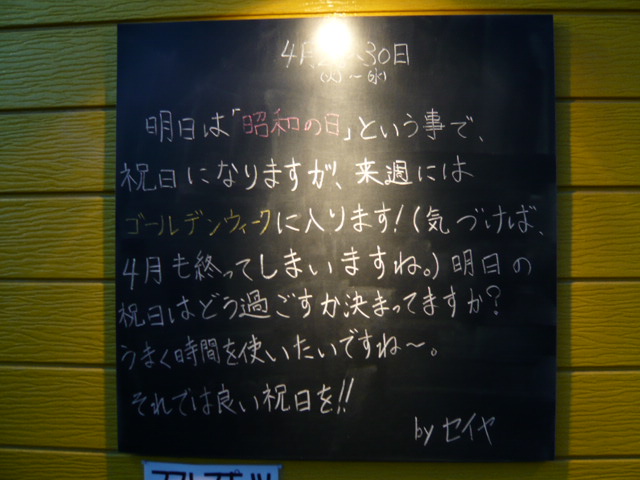 4月 30日
(火)～(水)
明日は「昭和の日」という事で、
祝日になりますが、来週には
ゴールデンウィークに入ります!(気づけば、
4月も終ってしまいますね。)明日の
祝日はどう過ごすか決まってますか?
うまく時間を使いたいですね～。
それでは良い祝日を!!
by セイヤ